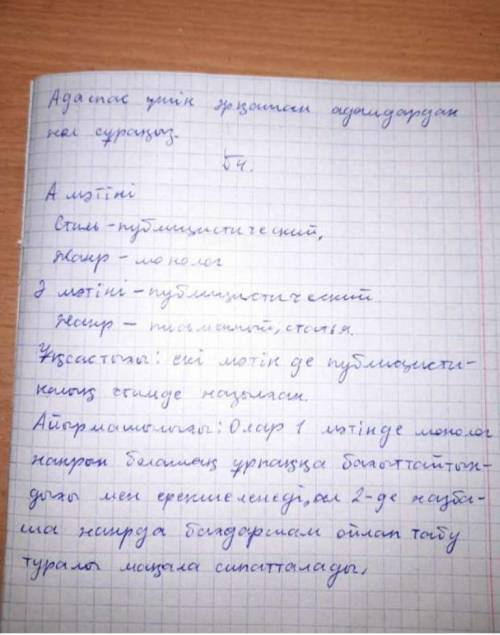 Адаспас үшін әрқашан адамдардан
жол сұраңыз.
Б4.
А мәтіні
Стиль - публицистический,
Жанр - монолог
Ә мәтіні - публицистический
Жанр - письменный, статья.
Ұқсастығы: екі мәтін де публицисти-
калық стильде жазылған.
Айырмашылығы: Олар 1 мәтінде монолог
жанрын болашақ ұрпаққа бағыттайтын-
дығы мен ерекшеленеді, ал 2-де жазба-
ша жанрда бағдарлам ойлап табу
туралы мақала сипатталады.